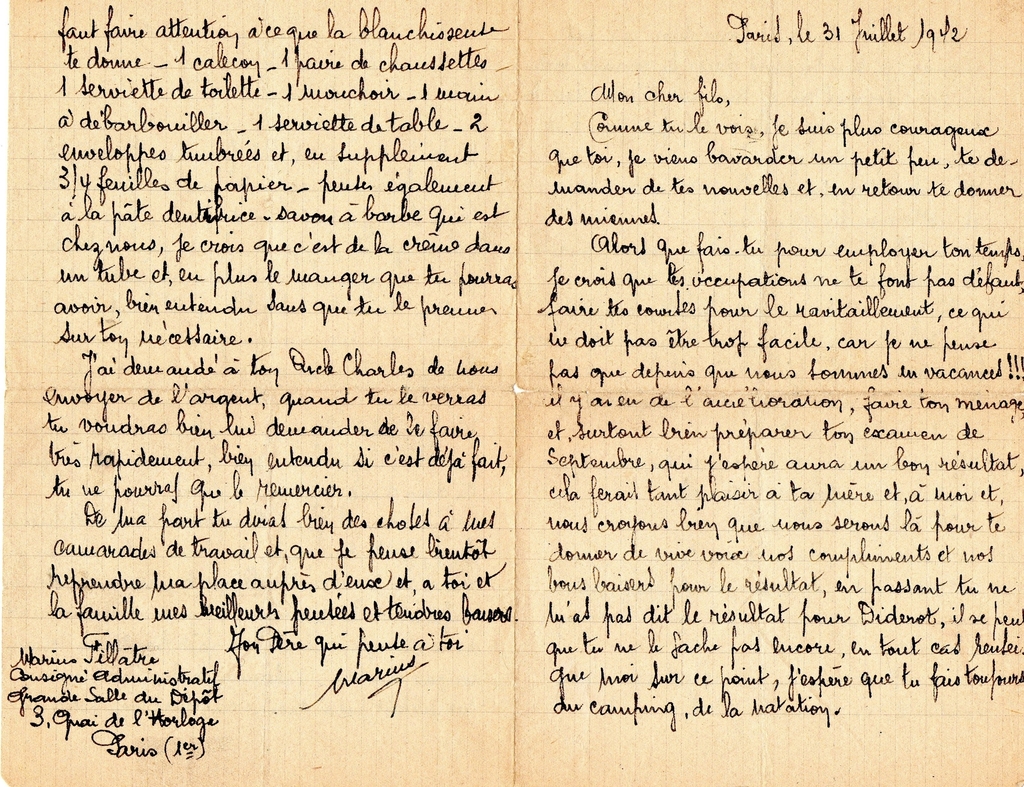 Paris, le 31 Juillet 1942
Mon cher fils,
Comme tu le vois, je suis plus courageux
que toi, je viens bavarder un petit peu, te de-
mander de tes nouvelles et, en retour te donner
des miennes.
Alors que fais-tu pour employer ton temps,
je crois que tes occupations ne te font pas défaut,
faire tes courses pour le ravitaillement, ce qui
ne doit pas être trop facile, car je ne pense
pas que depuis que nous sommes en vacances!!!
il y ai eu de l'amélioration, faire ton ménage
et, surtout bien préparer ton examen de
Septembre, qui j'espère aura un bon résultat,
cela ferait tant plaisir à ta mère et, à moi et,
nous croyons bien que nous serons là pour te
donner de vive voix nos compliments et nos
bons baisers pour le résultat, en passant tu ne
m'as pas dit le résultat pour Diderot, il se peut
que tu ne le sache pas encore, en tout cas rensei-
gne moi sur ce point, j'espère que tu fais toujours
du camping, de la natation.
faut faire attention à ce que la blanchisseuse
te donne - 1 caleçon - 1 paire de chaussettes -
1 serviette de toilette - 1 mouchoir - 1 main
à débarbouiller - 1 serviette de table - 2
enveloppes timbrées et, en supplément
3/4 feuilles de papier - penses également
à la pâte dentifrice - savon à barbe qui est
chez nous, je crois que c'est de la crème dans
un tube et, en plus le manger que tu pourras
avoir, bien entendu sans que tu le prennes
sur ton nécessaire.
J'ai demandé à ton Oncle Charles de nous
envoyer de l'argent, quand tu le verras
tu voudras bien lui demander de le faire
très rapidement, bien entendu si c'est déjà fait,
tu ne pourras que le remercier.
De ma part tu diras bien des choses à mes
camarades de travail et, que je pense bientôt
reprendre ma place auprès d'eux et, a toi et
la famille mes meilleurs pensées et tendres baisers.
Ton Père qui pense a toi
Marius
Marius Fillatre
Consigné Administratif
Grande Salle du Dépôt
3, Quai de l'Horloge
Paris (1er)